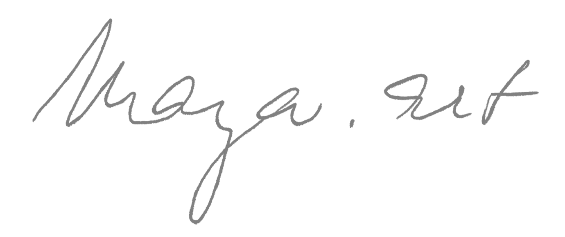 Maya. art